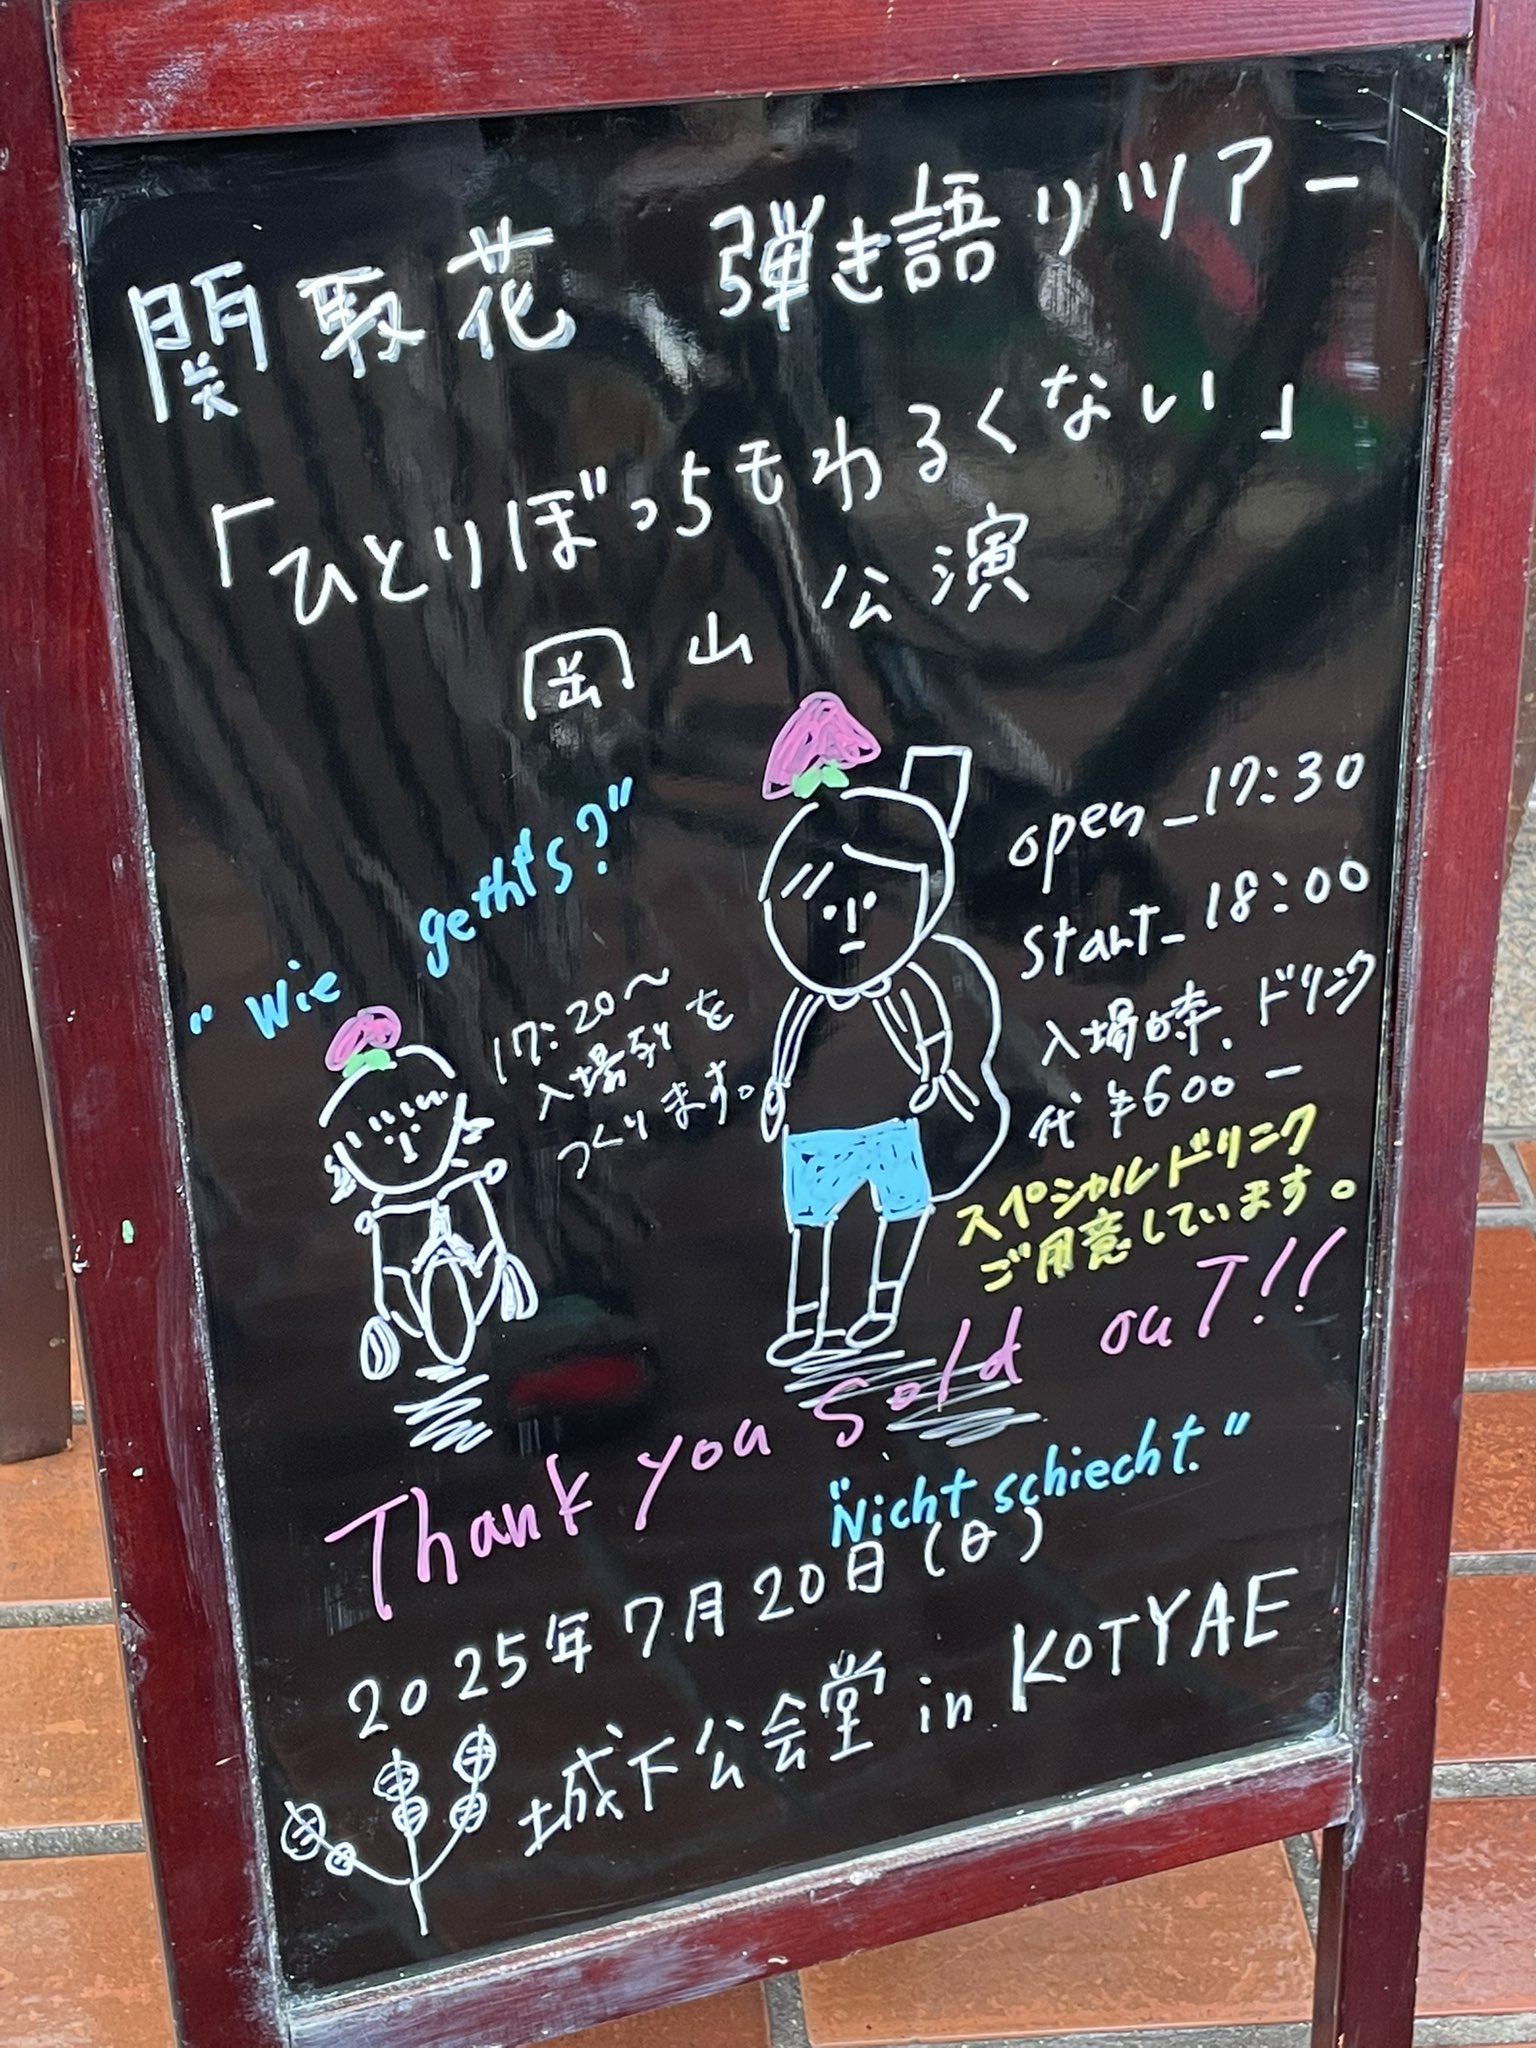 関取花 弾き語りツアー
「ひとりぼっちもわるくない」
岡山公演
"Wie geht's?"
17:20〜
入場列を
つくります。
open_17:30
start_18:00
入場時、ドリンク
代￥600ー
スペシャルドリンク
ご用意しています。
Thank you Sold ouT!!
"Nicht schiecht."
2025年7月20日(日)
城下公会堂 in KOTYAE